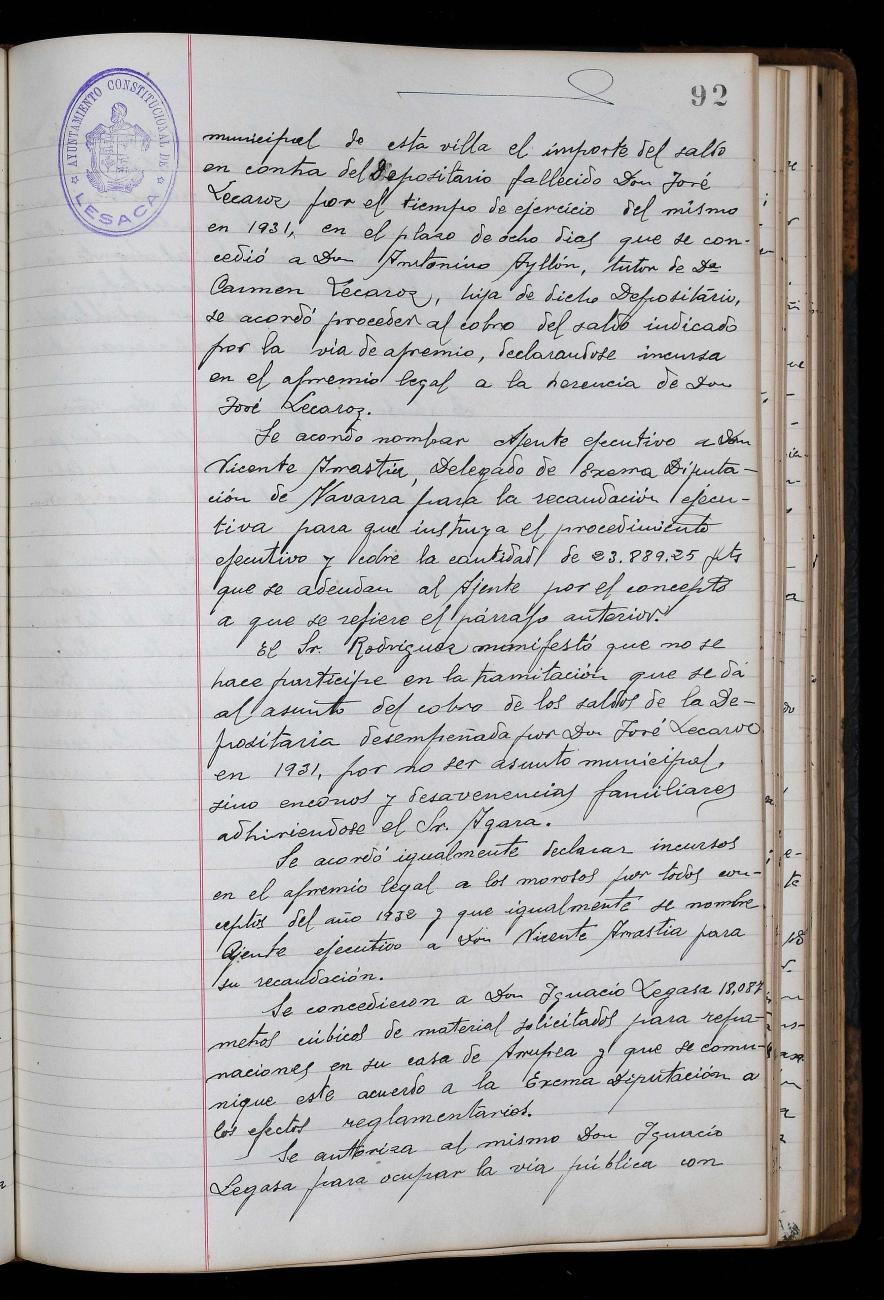 92
AYUNTAMIENTO CONSTITUCIONAL DE
LESACA
municipal de esta villa el importe del saldo
en contra del Depositario fallecido Don José
Lecaroz por el tiempo de ejercicio del mismo
en 1931, en el plazo de ocho dias que se con-
cedió a Don Antonino Ayllón, tutor de Dª
Carmen Lecaroz, hija de dicho Depositario,
se acordó proceder al cobro del saldo indicado
por la via de apremio, declarandose incursa
en el apremio legal a la herencia de Don
José Lecaroz.
Se acordo nombar Ajente ejecutivo a Don
Vicente Irrastia, Delegado de Exema Diputa-
ción de Navarra para la recaudación ejecu-
tiva para que instruya el procedimiento
ejecutivo y cobre la cantidad de 23.889,25 pts
que se adeudan al Ajente por el concepto
a que se refiere el párrafo anterior.
El Sr. Rodriguez manifestó que no se
hace participe en la tramitación que se dá
al asunto del cobro de los saldos de la De-
positaria desempeñada por Don José Lecaroz
en 1931, por no ser asunto municipal,
sino enconos y desavenencias familiares
adhiriendose el Sr. Igara.
Se acordó igualmente declarar incursos
en el apremio legal a los morosos por todos con-
ceptos del año 1932 y que igualmente se nombre
Ajente ejecutivo a Don Vicente Irrastia para
su recaudación.
Se concedieron a Don Ignacio Legasa 18,087
metros cúbicos de material solicitados para repa-
naciones en su casa de Arrupea y que se comu-
nique este acuerdo a la Exema Diputación a
los efectos reglamentarios.
Se autoriza al mismo Don Ignacio
Legasa para ocupar la via pública con